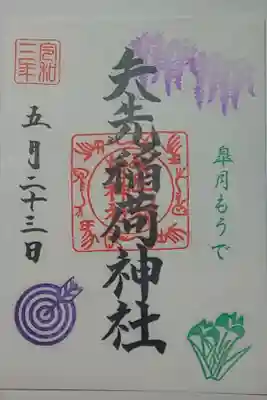 皐月もうで
矢先稲荷神社
令和
三年
五月二十三日